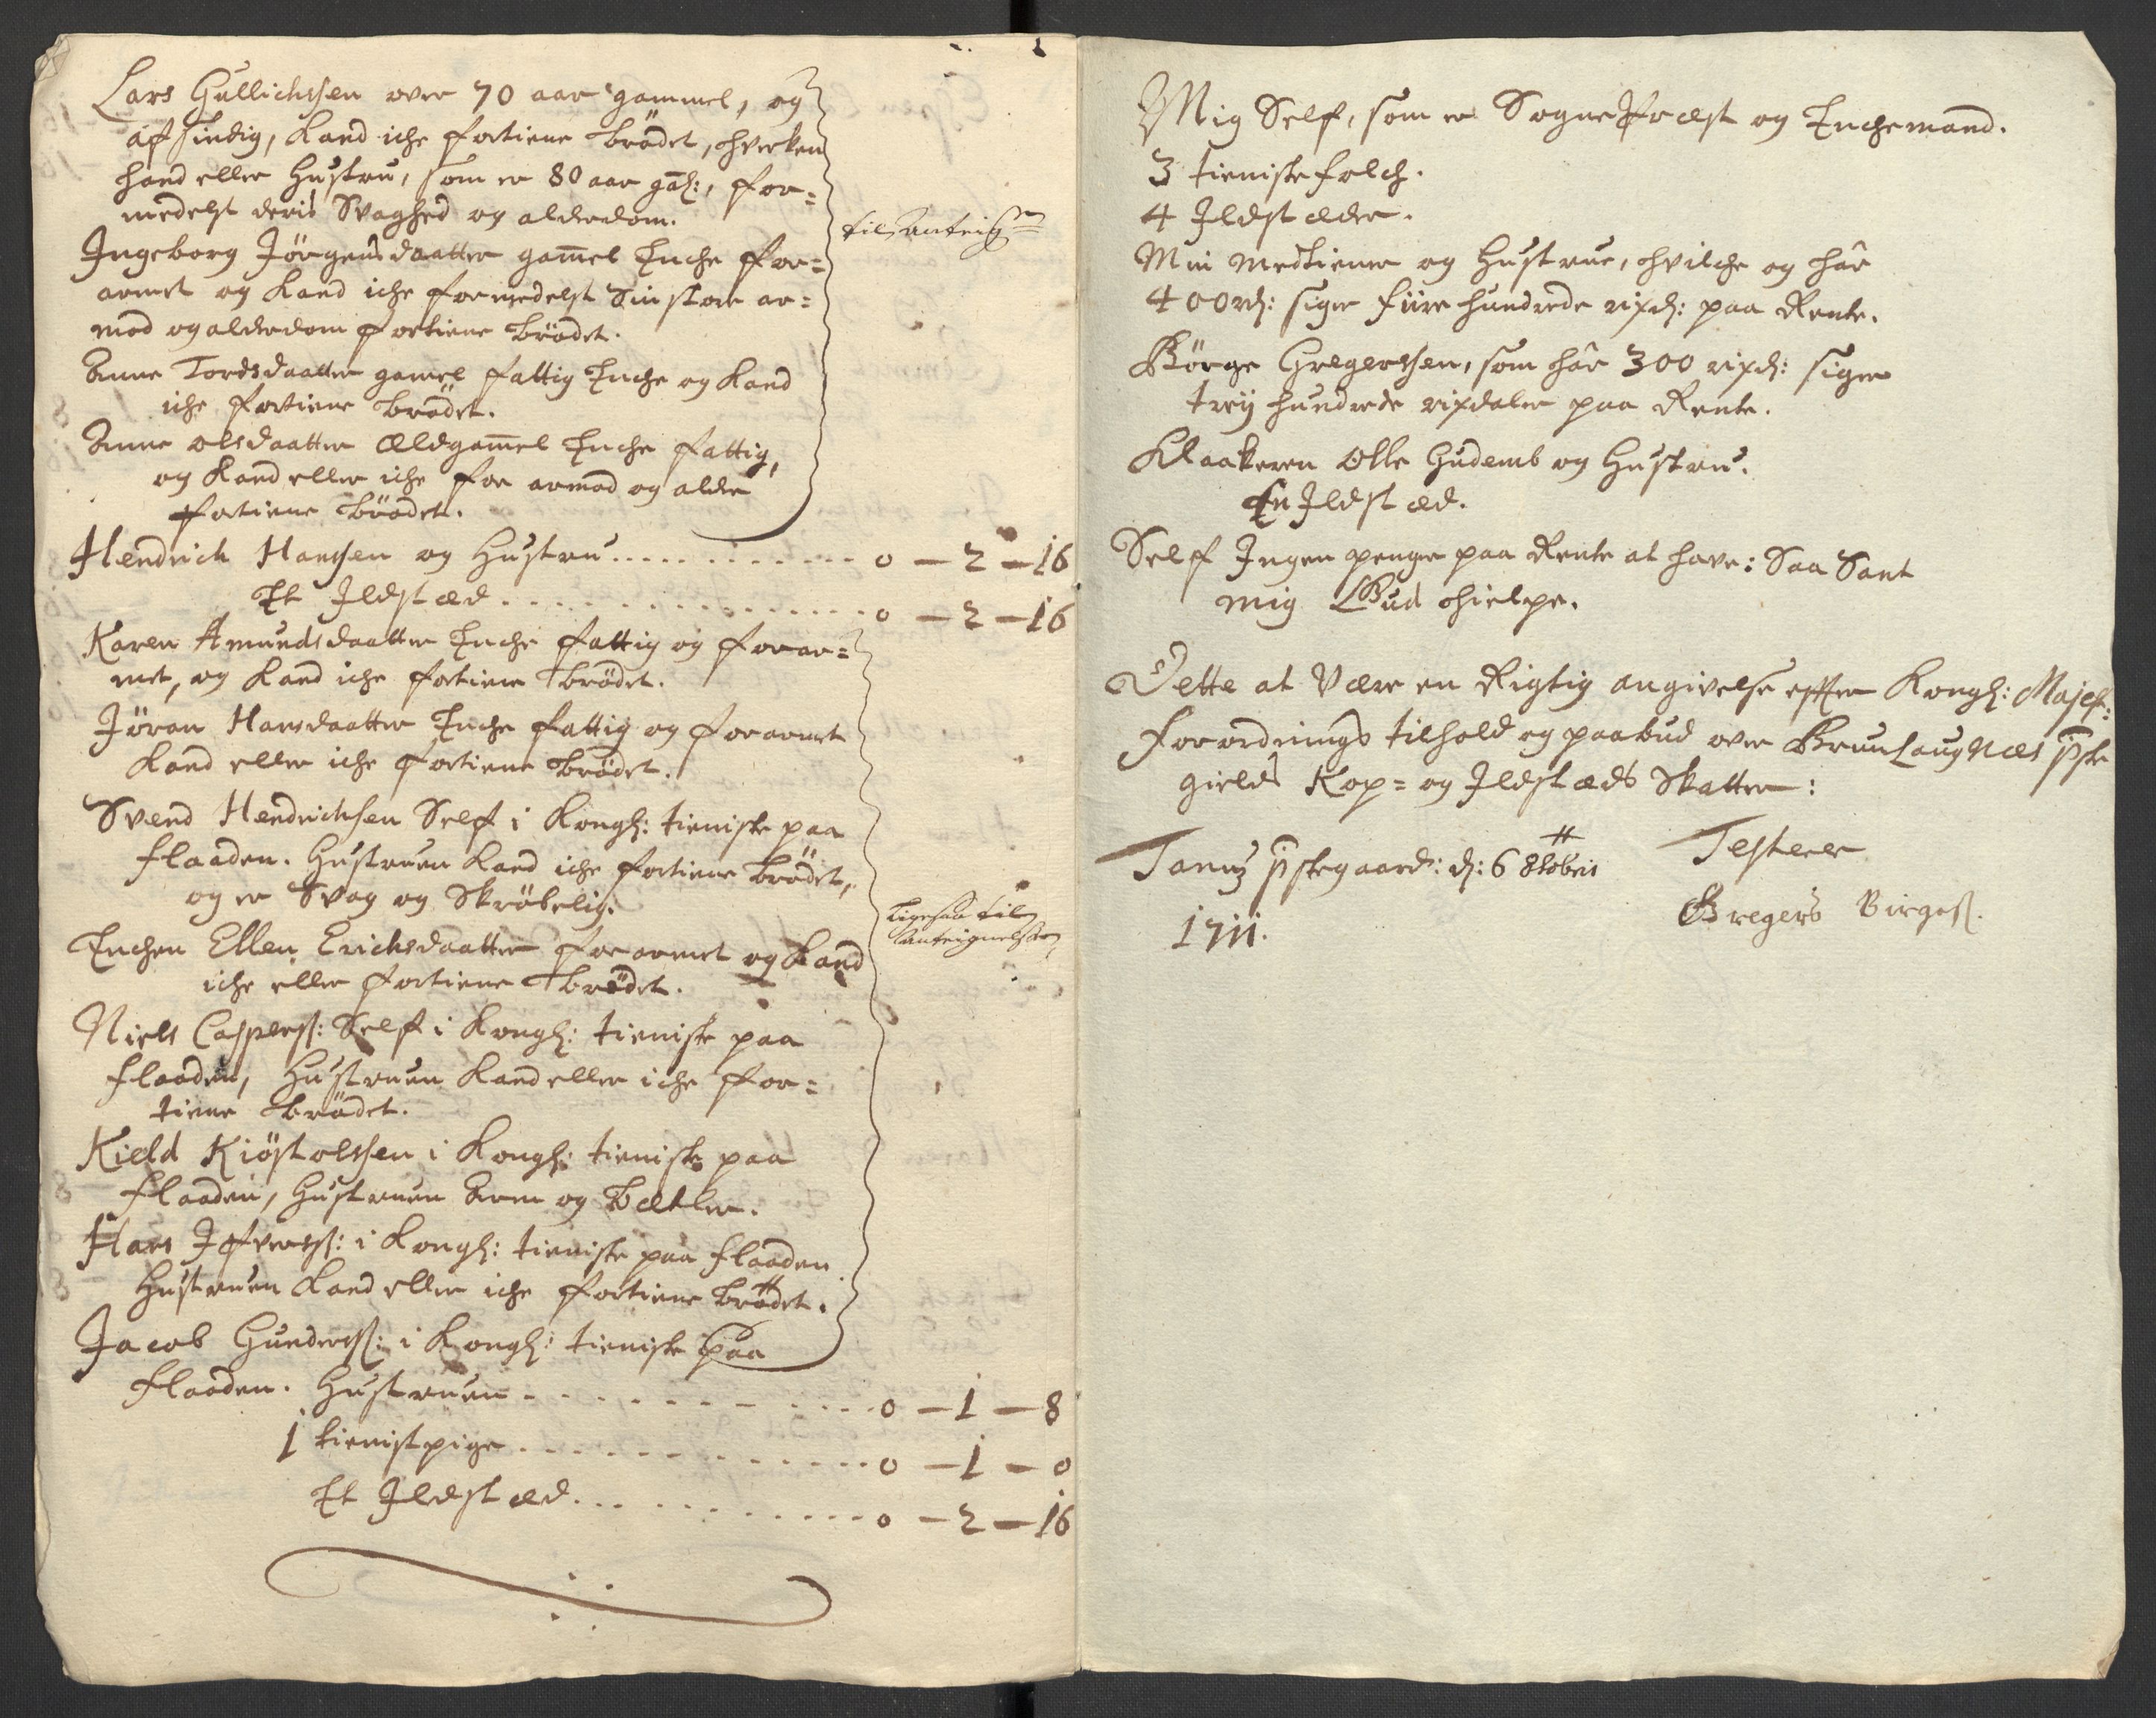 Lars Gullichssen over 70 aar gammel, og
afsindig, kand iche fortiene brödet, hverken
hand eller hustru, som er 80 aar gal:, for=
medelst deris Svaghed og alderdom.
til Anteig
Ingeborg Jörgensdaatter gam̅el Enche for=
armet og kand iche formedelst Sin store ar=
mod og alderdom fortiene brödet.
Anne Tordsdaatter gamel fattig Enche og kand
iche fortiene brödet.
Anne olsdaatter Ældgam̅el Enche fattig,
og kand eller iche for armod og alder
fortiene brödet.
Hendrich Hanssen og Hustru ............ 0 — 2 — 16
Et Ildstæd ................ 0 — 2 — 16
Karen Amundsdaatter Enche fattig og forar=
met, og kand iche fortiene brödet.
Jöran Hansdaatter Enche fattig og forarmet
kand eller iche fortiene brödet.
Svend Hendrichsen Self i Kongl: tieniste paa
flaaden. Hustruen kand iche fortiene brödet,
og er Svag og Skröbelig.
Ligesaa til
Anteignelse
Enchen Ellen Erichsdaatter forarmet og kand
iche eller fortiene brödet.
Niels Casperss: Self i Kongl: tieniste paa
flaaden, Hustruen kand eller iche for=
tiene brödet.
Kield Kiöstolssen i Kongl: tieniste paa
flaaden, Hustruen Arm og betler.
Hans Ifverss: i Kongl: tieniste paa flaaden
Hustruen kand eller iche fortiene brödet.
Jacob Gunderss: i Kongl: tieniste paa
flaaden. Hustruen ............ 0 — 1 — 8
1 tienistpige ............ 0 — 1 — 0
Et Ildstæd ............ 0 — 2 — 16
Mig Self, som er SognePræst og Enchemand.
3 tienistefolch.
4 Ildstæder.
Min Medtiener og Hustrue, hvilche og hâr
400rd: siger fiire hundrede rixd: paa Rente.
Börge Gregerssen, som hâr 300 rixd: siger
trej hundrede rixdaler paa Rente.
Klaakeren Olle Gudemb og Hustru.
En Ildstæd.
Self Ingen penge paa Rente at have: Saa Sant
mig Gud hielpe.
Dette at Være en Rigtig angivelse efter Kongl: Majest:
forordnings tilhold og paabud over Brunlaugnæs p̅ste
gields Kop= og Ildstæds Skatter:
Tanum p̅stegaard: d: 6 8tobris
1711.
Testerer
Gregers Birges.